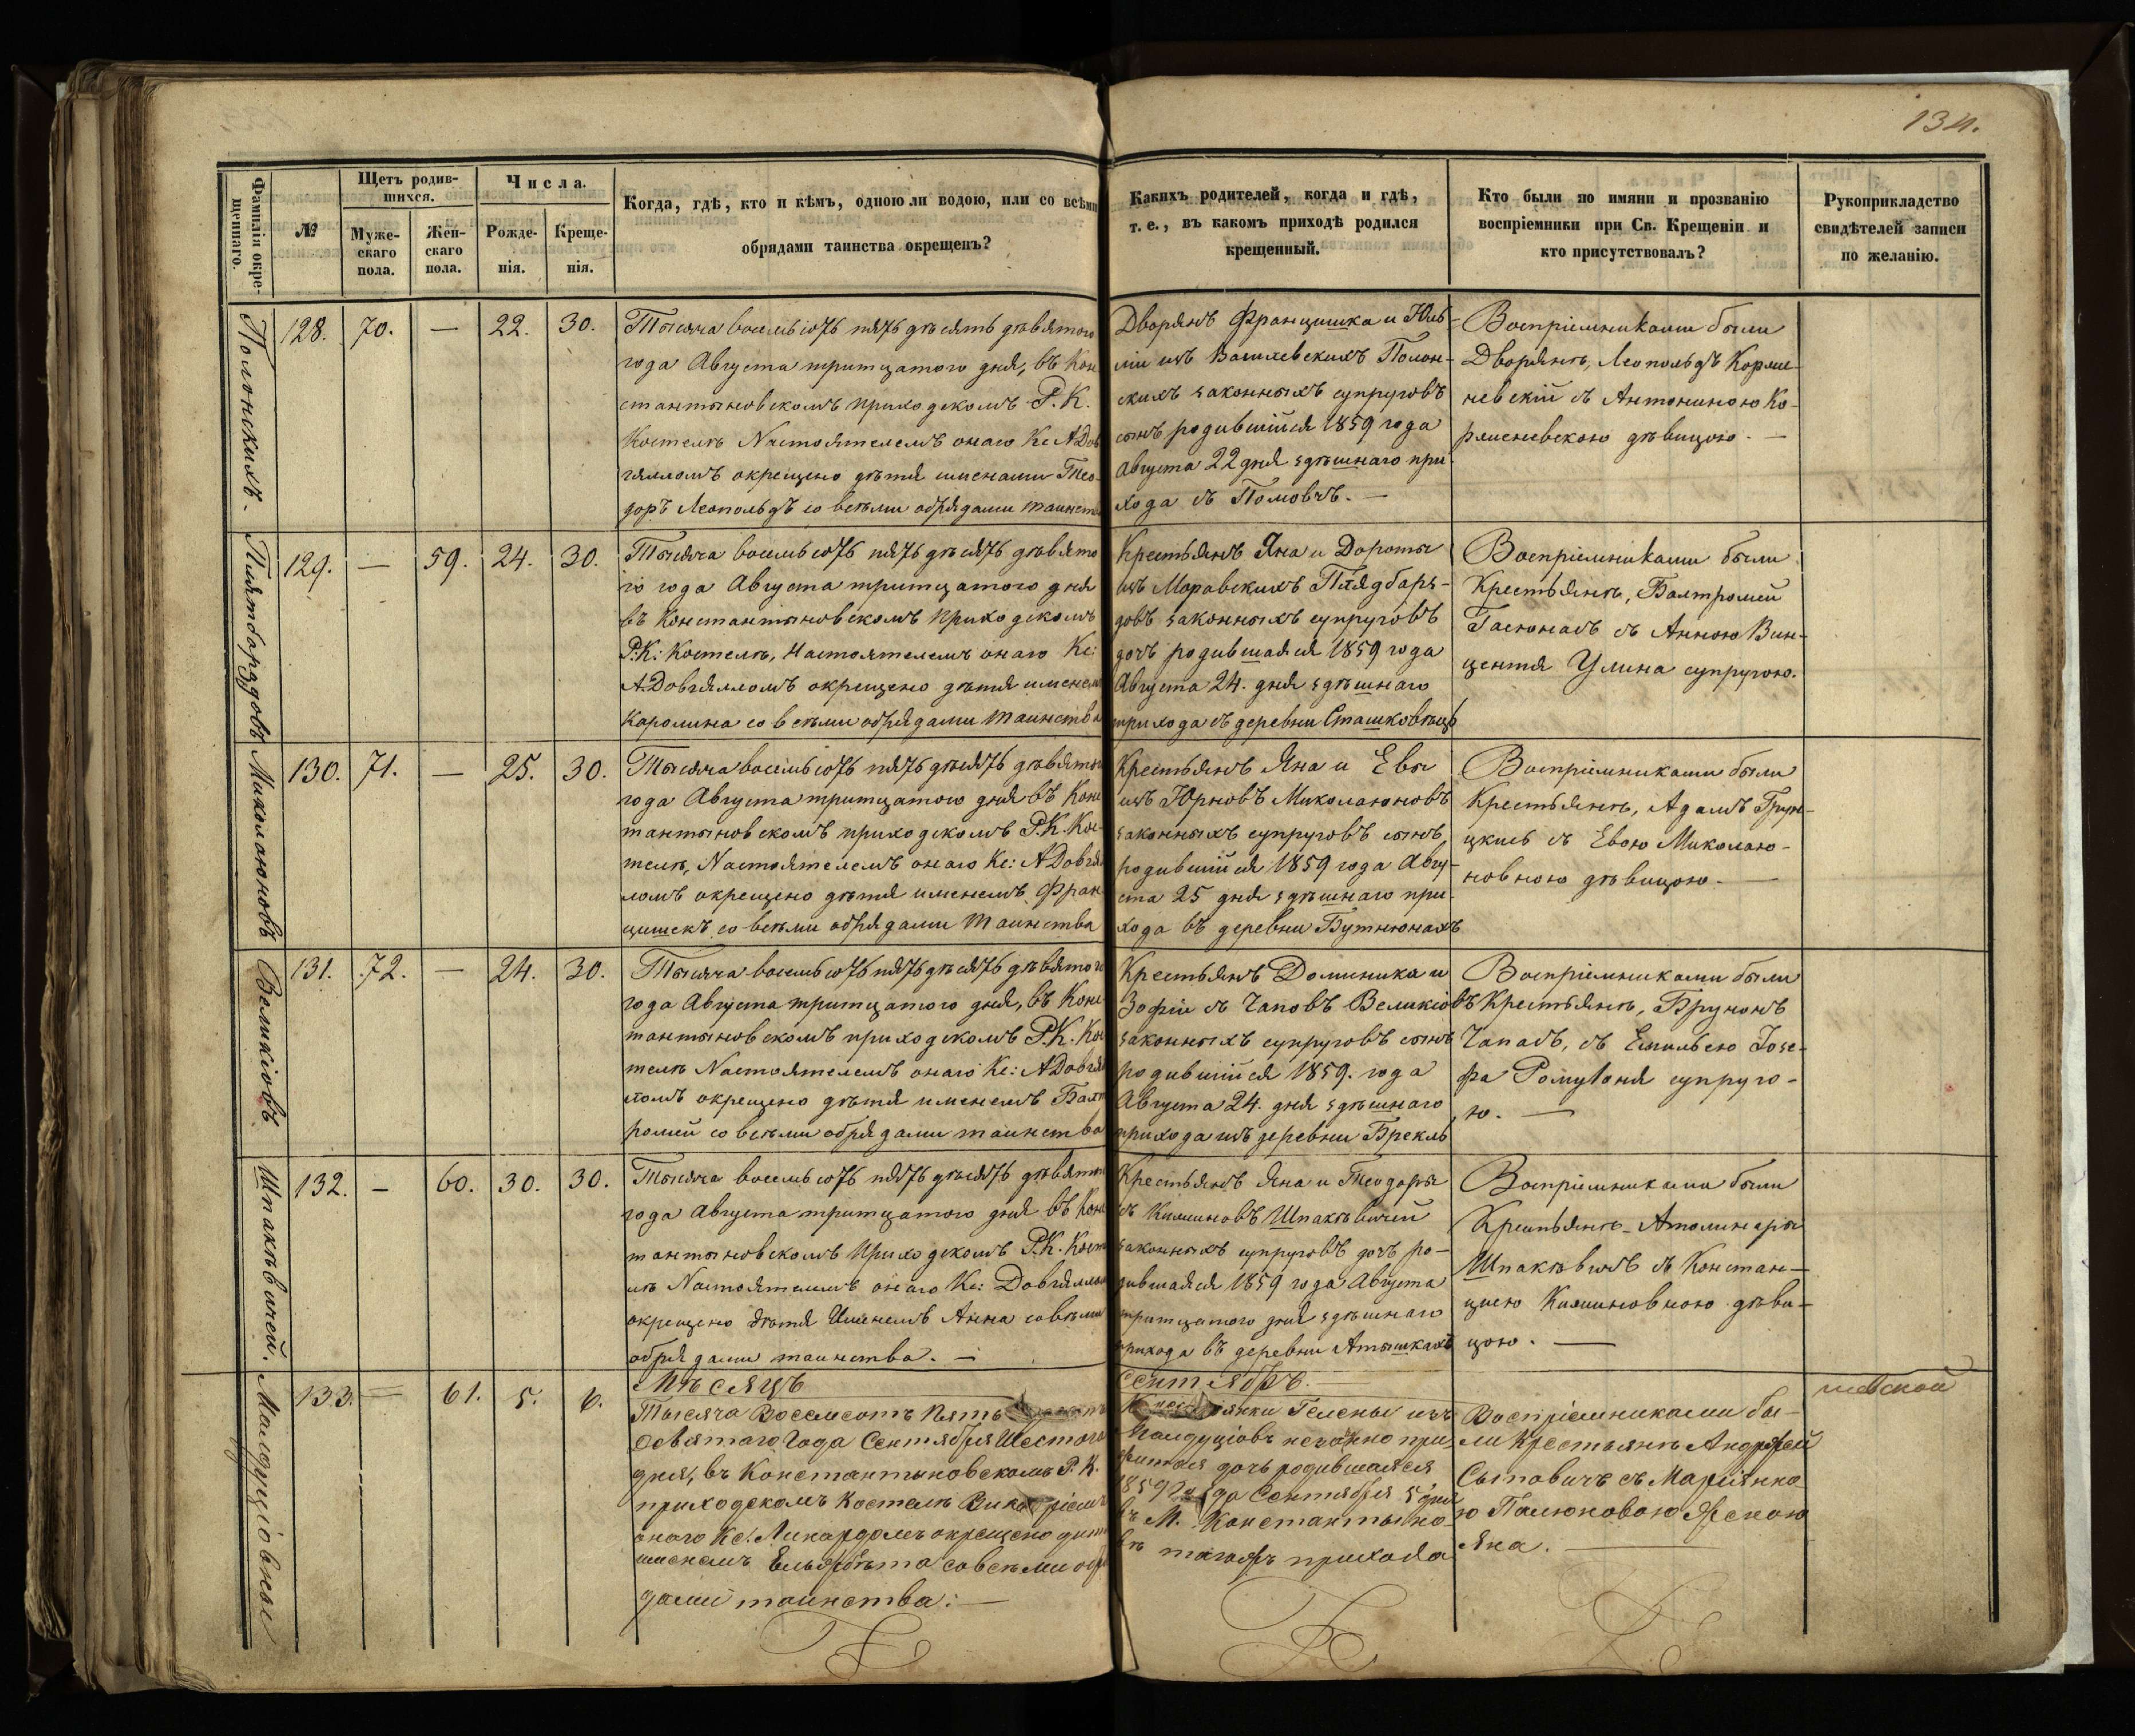 134.
Фамилія окрещеннаго.
№
Щетъ родив-
шихся.
Муже-
скаго
пола.
Жен-
скаго
пола.
Числа.
Рожде-
нія.
Креще-
нія.
Когда, гдѣ, кто и кѣмъ, одною ли водою, или со всѣми
обрядами таинства окрещенъ?
Какихъ родителей, когда и гдѣ,
т. е., въ какомъ приходѣ родился
крещенный.
Кто были по имяни и прозванію
воспріемники при Св. Крещеніи и
кто присутствовалъ?
Рукоприкладство
свидѣтелей записи
по желанію.
Полонскихъ.
128. 70. — 22. 30.
Тысяча восемьсотъ пятьдѣсятъ дѣвятого
года Августа тритцатого дня, въ Кон
стантыновскомъ приходскомъ Р. К.
Костелѣ Настоятелемъ онаго Кс А Дов
гялломъ окрещено дѣтя именами Тео-
доръ Леопольдъ со всѣми обрядами таинств
Дворянъ Францишка и Юль-
ліи изъ Василевскихъ Полон-
скихъ законныхъ супруговъ
сынъ родившійся 1859 года
Августа 22 дня здѣшнаго при-
хода въ —
Воспріемниками были
Дворянѣ, Леопольдъ Корже-
невскій съ Антониною Ко-
рженевскою дѣвицою. —
Пиятборздовъ
129. — 59. 24. 30.
Тысяча восемьсотъ пятьдѣсятъ дѣвято
го года Августа тритцатого дня
въ Константыновскомъ приходскомъ
Р.К: Костелѣ, Настоятелемъ онаго Кс:
А.Довгялломъ окрещено дѣтя именем
Каролина со всѣми обрядами таинства
Крестьянъ Яна и Дороты
изъ Моравскихъ Пядбарз-
довъ законныхъ супруговъ
дочъ родившаяся 1859 года
Августа 24. дня здѣшнаго
прихода въ деревни Сташковѣцъ
Воспріемниками были
Крестьянѣ, Балтромей
Гасюнасъ съ Анною Вин-
центя Улина супругою.
Миколаюновъ
130. 71. — 25. 30.
Тысяча восемьсотъ пятьдѣсятъ дѣвятого
года Августа тритцатого дня въ Конс
тантыновскомъ приходскомъ Р.К. Кос-
телѣ, Настоятелемъ онаго Кс: А Довгял
ломъ окрещено дѣтя именемъ Фран-
цишекъ со всѣми обрядами таинства
Крестьянъ Яна и Евы
изъ Юрновъ Миколаюновъ
законныхъ супруговъ сынъ
родившійся 1859 года Авгу-
ста 25 дня здѣшнаго при-
хода въ деревни Бутнюнахъ
Воспріемниками были
Крестьянѣ, Адамъ
съ Евою Миколаю-
новною дѣвицою —
Великіовъ
131. 72. — 24. 30.
Тысяча восемьсотъ пятьдѣсятъ дѣвятого
года Августа тритцатого дня, въ Конс
тантыновскомъ приходскомъ Р.К. Кос
телѣ Настоятелемъ онаго Кс: А Довгял
ломъ окрещено дѣтя именемъ Балт
ромей со всѣми обрядами таинства
Крестьянъ Доминика и
Зофіи съ Чаповъ Великіовъ
законныхъ супруговъ сынъ
родившійся 1859. года
Августа 24. дня здѣшнаго
прихода изъ деревни Брекль
Воспріемниками были
Крестьянѣ, Брунонъ
Чапасъ, съ Емильею Іозе-
фа супруго-
ю. —
Шпакѣвичей.
132. — 60. 30. 30.
Тысяча восемьсотъ пятьдѣсятъ дѣвятого
года Августа тритцатого дня въ Конс
тантыновскомъ приходскомъ Р.К. Кост
елѣ Настоятелемъ онаго Кс: Довгяллом
окрещено дѣтя Именемъ Анна со всѣми
обрядами таинства. —
Крестьянъ Яна и Теодоры
съ Шпакѣвичей
законныхъ супруговъ дочъ ро-
дившаяся 1859 года Августа
тритцатого дня здѣшнаго
прихода въ деревни Атышкахъ
Воспріемниками были
Крестьянѣ
Шпакѣвичъ съ Констан-
цыею дѣви-
цою. —
Малдуціовны
133. — 61. 5. 6.
Мѣсяцъ
Сентябръ. —
Тысяча Восемсотъ Пять
Девятаго Года Сентября Шестого
дня, въ Константыновскомъ Р. К.
приходскомъ Костелѣ Викаріемъ
онаго Кс: Ликардомъ окрещено дитя
именемъ Ельжбѣта со всѣми обр
дами таинства: —
Крестьянки Гелены изъ
Малдуціовъ незаконно при
житая дочь родившаяся
1859 года Сентября 5 дня
въ М. Константыно-
вѣ тагожъ прихода
Воспріемниками бы-
ли Крестьянѣ Андржей
Сыповичъ съ Маріянно
ю Палюновою Женою
Яна. —